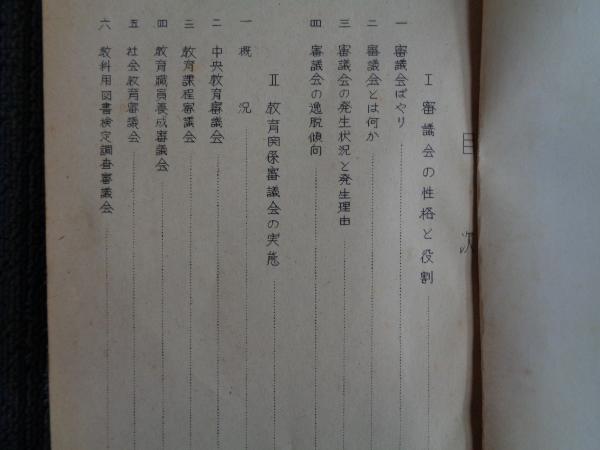 目次
Ⅰ 審議会の性格と役割
一 審議会ばやり
二 審議会とは何か
三 審議会の発生状況と発生理由
四 審議会の逸脱傾向
Ⅱ 教育関係審議会の実態
一 概況
二 中央教育審議会
三 教育課程審議会
四 教育職員養成審議会
五 社会教育審議会
六 教科用図書検定調査審議会